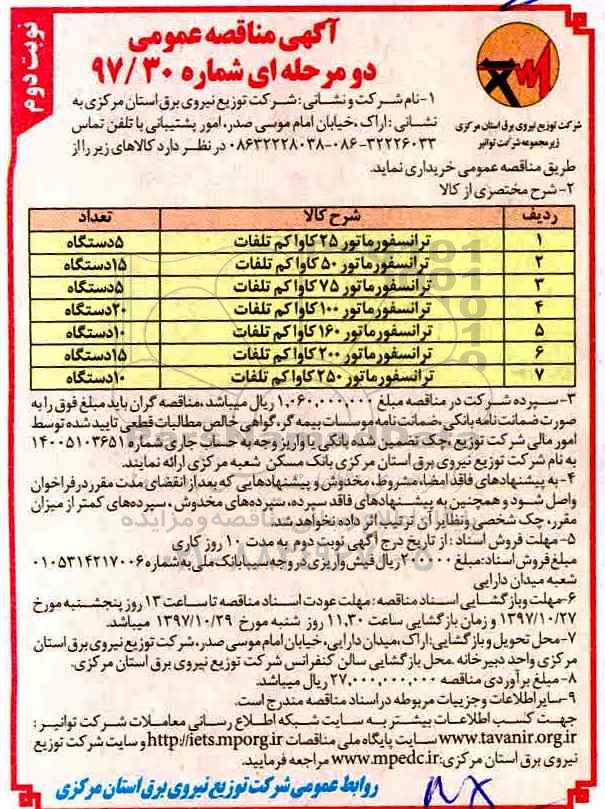 نوبت دوم
آگهی مناقصه عمومی
دو مرحله ای شماره ۹۷/۳۰
شرکت توزیع نیروی برق استان مرکزی
زیرمجموعه شرکت توانیر
۱-نام شرکت و نشانی: شرکت توزیع نیروی برق استان مرکزی به
نشانی: اراک، خیابان امام موسی صدر، امور پشتیبانی با تلفن تماس
۰۸۶-۳۲۲۲۶۰۳۳-۰۸۶۳۲۲۲۸۰۳۸ در نظر دارد کالاهای زیر را از
طریق مناقصه عمومی خریداری نماید.
۲- شرح مختصری از کالا
ردیف شرح کالا تعداد
۱ ترانسفورماتور ۲۵ کاوا کم تلفات ۵دستگاه
۲ ترانسفورماتور ۵۰ کاوا کم تلفات ۱۵دستگاه
۳ ترانسفورماتور ۷۵ کاوا کم تلفات ۵دستگاه
۴ ترانسفورماتور ۱۰۰ کاوا کم تلفات ۲۰دستگاه
۵ ترانسفورماتور ۱۶۰ کاوا کم تلفات ۱۰دستگاه
۶ ترانسفورماتور ۲۰۰ کاوا کم تلفات ۱۵دستگاه
۷ ترانسفورماتور ۲۵۰ کاوا کم تلفات ۱۰دستگاه
۳- سپرده شرکت در مناقصه مبلغ ۱.۰۶۰.۰۰۰.۰۰۰ ریال میباشد، مناقصه گران باید مبلغ فوق را به
صورت ضمانت نامه بانکی، ضمانت نامه موسسات بیمه گر، گواهی خالص مطالبات قطعی تایید شده توسط
امور مالی شرکت توزیع، چک تضمین شده بانکی یا واریز وجه به حساب جاری شماره ۱۴۰۰۵۱۰۳۶۵۱
به نام شرکت توزیع نیروی برق استان مرکزی بانک مسکن شعبه مرکزی ارائه نمایند.
۴- به پیشنهادهای فاقد امضاء، مشروط، مخدوش و پیشنهادهایی که بعد از انقضای مدت مقرر در فراخوان
واصل شود و همچنین به پیشنهادهای فاقد سپرده، سپرده‌های مخدوش، سپرده‌های کمتر از میزان
مقرر، چک شخصی و نظایر آن ترتیب اثر داده نخواهد شد.
۵- مهلت فروش اسناد: از تاریخ درج آگهی نوبت دوم به مدت ۱۰ روز کاری
مبلغ فروش اسناد: مبلغ ۲۰۰.۰۰۰ ریال فیش واریزی در وجه سیبا بانک ملی به شماره ۰۱۰۵۳۱۴۲۱۷۰۰۶
شعبه میدان دارایی
۶-مهلت و بازگشایی اسناد مناقصه: مهلت عودت اسناد مناقصه تا ساعت ۱۳ روز پنجشنبه مورخ
۱۳۹۷/۱۰/۲۷ و زمان بازگشایی ساعت ۱۱.۳۰ روز شنبه مورخ ۱۳۹۷/۱۰/۲۹ میباشد.
۷- محل تحویل و بازگشایی: اراک، میدان دارایی، خیابان امام موسی صدر، شرکت توزیع نیروی برق استان
مرکزی واحد دبیرخانه .محل بازگشایی سالن کنفرانس شرکت توزیع نیروی برق استان مرکزی.
۸- مبلغ برآوردی مناقصه ۲۷.۰۰۰.۰۰۰.۰۰۰ ریال میباشد.
۹-سایر اطلاعات و جزییات مربوطه در اسناد مناقصه مندرج است.
جهت کسب اطلاعات بیشتر به سایت شبکه اطلاع رسانی معاملات شرکت توانیر:
www.tavanir.org.ir سایت پایگاه ملی مناقصات http://iets.mporg.ir و سایت شرکت توزیع
نیروی برق استان مرکزی: www.mpedc.ir مراجعه فرمایید.
روابط عمومی شرکت توزیع نیروی برق استان مرکزی